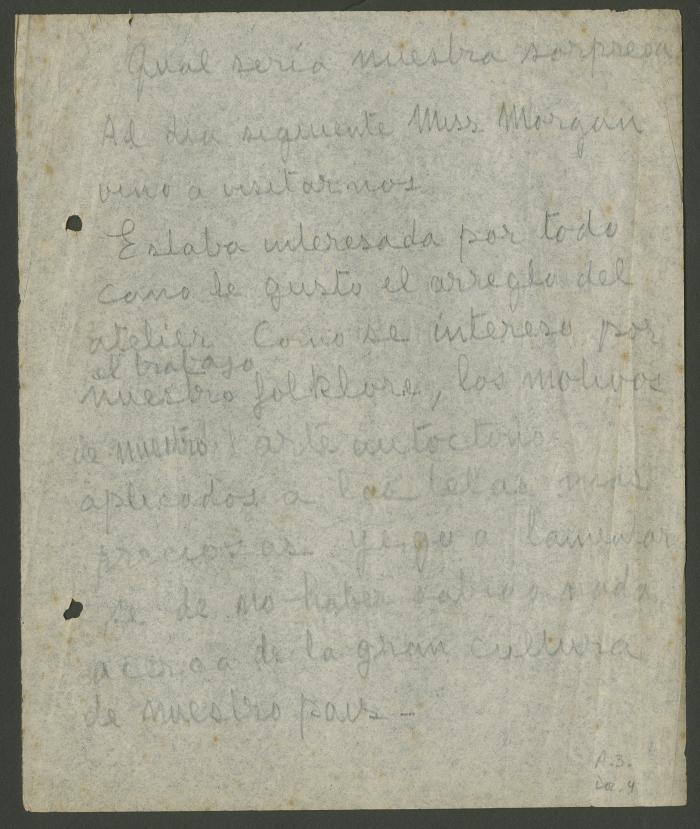 Qual sería nuestra sorpresa
Al dia siguiente Miss Morgan
vino a visitarnos
Estaba interesada por todo
como le gusto el arreglo del
atelier Como se intereso por
el trabajo
nuestro folklore, los motivos
de nuestro arte autoctono
aplicados a las telas mas
preciosas yego a lamentar
se de no haber sabido nada
acerca de la gran cultura
de nuestro pais -
A.3.
Doc. 4